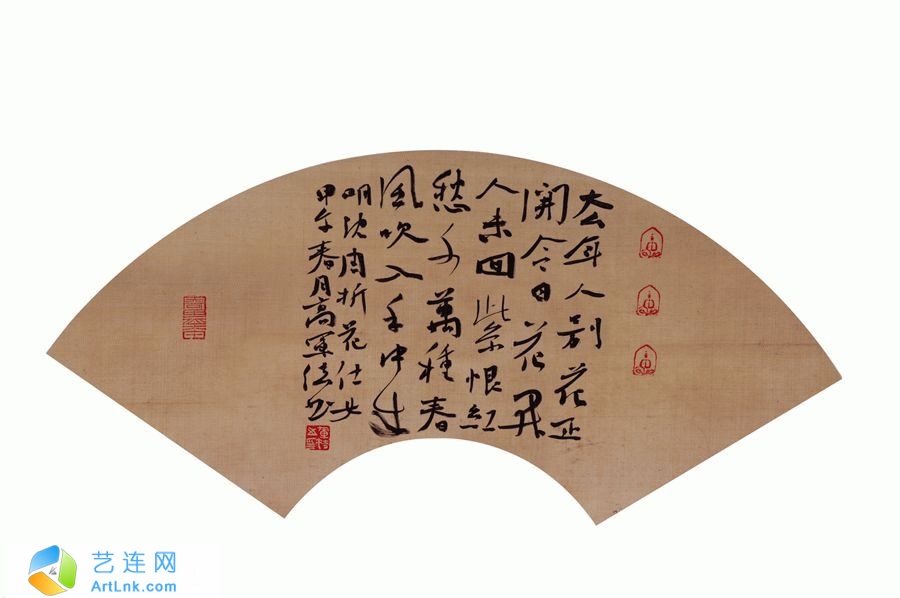 去年人别花正
開今日花开
人未回紫恨紅
愁千萬種春
風吹入手中来
明沈周折花仕女
甲午春月高軍法书
艺连网
ArtLnk.com